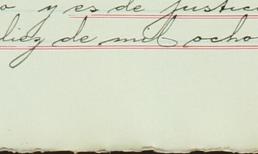 o y es de justici
diez de mil ocho